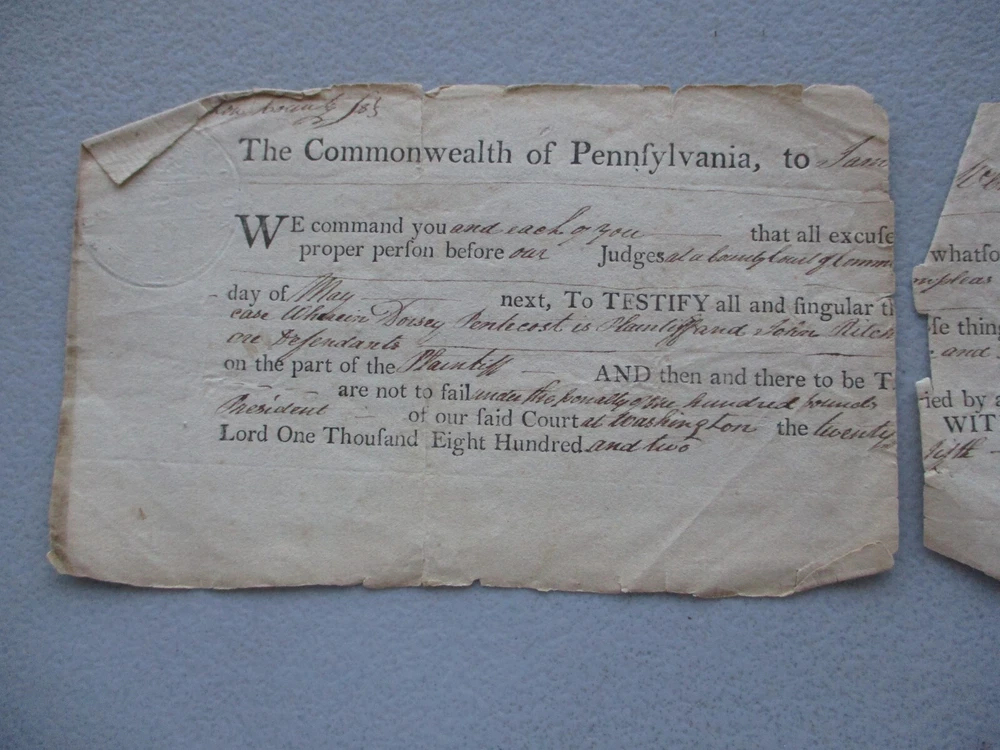 County SS
The Commonwealth of Pennſylvania, to Sam
WE command you and each of you that all excuſe
proper perſon before our Judges at a County Court of Comm
day of May next, To TESTIFY all and ſingular th
case wherein Dorsey Pentecost is Plaintiff and John Ritch
are Defendants
on the part of the Plaintiff AND then and there to be T
are not to fail under the penalty of one hundred pounds
President of our ſaid Court at Washington the twenty
Lord One Thouſand Eight Hundred and two
whatſo
n pleas
ſe thing
and
ried by a
WIT
fifth